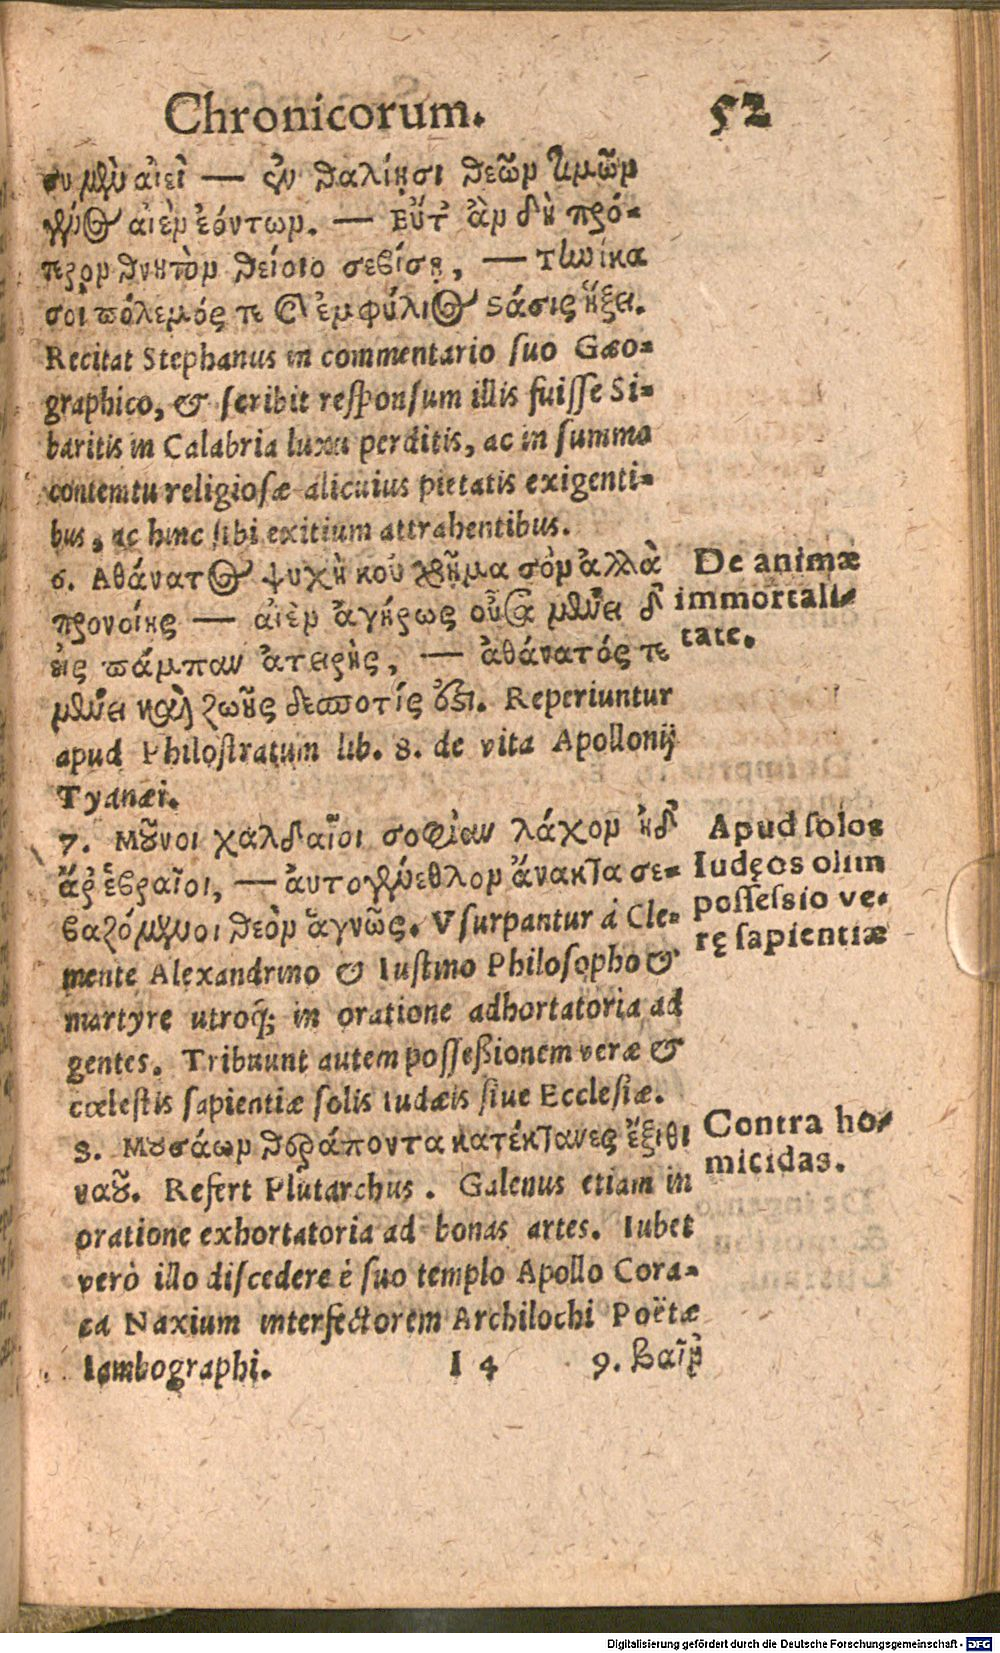 Chronicorum. 52
συ μὲν αἰεὶ — ἐν θαλίῃσι θεῶν τιμῶν
γένος αἰὲν ἐόντων. — Εὖτ' ἂν δὴ πρό-
τερον θνητὸν θείοιο σεβίσῃ, — Τηνίκα
σοὶ πόλεμός τε καὶ ἐμφύλιος στάσις ἥξει.
Recitat Stephanus in commentario suo Gæo-
graphico, & scribit responsum illis fuisse Si-
baritis in Calabria luxu perditis, ac in summo
contemtu religiosæ alicuius pietatis exigenti-
bus, ac hinc sibi exitium attrahentibus.
6. Ἀθάνατος ψυχὴ κοὐ χρῆμα σὸν ἀλλὰ
προνοίης — αἰὲν ἀγήρως οὖσα μένει δ'
εἰς πάμπαν ἀτειρὴς, — ἀθάνατός τε
μένει καὶ ζωῆς δεσποτίς ἐστι. Reperiuntur
apud Philostratum lib. 8. de vita Apollonij
Tyanæi.
De animæ
immortali-
tate.
7. Μοῦνοι χαλδαῖοι σοφίαν λάχον ἠδ'
ἄρ' ἑβραῖοι, — ἀυτογένεθλον ἄνακτα σε-
βαζόμενοι θεὸν ἁγνῶς. Vsurpantur á Cle-
mente Alexandrino & Iustino Philosopho &
martyre utroq; in oratione adhortatoria ad
gentes. Tribuunt autem possessionem veræ &
cœlestis sapientiæ solis Iudæis siue Ecclesiæ.
Apud solos
Iudęos olim
possessio ve-
rę sapientiæ
8. Μουσάων θεράποντα κατέκτανες ἔξιθι
ναοῦ. Refert Plutarchus. Galenus etiam in
oratione exhortatoria ad bonas artes. Iubet
verò illo discedere è suo templo Apollo Cora-
ca Naxium interfectorem Archilochi Poëtæ
Iambographi.
Contra ho-
micidas.
I 4 9. Βαῖν'
Digitalisierung gefördert durch die Deutsche Forschungsgemeinschaft - DFG